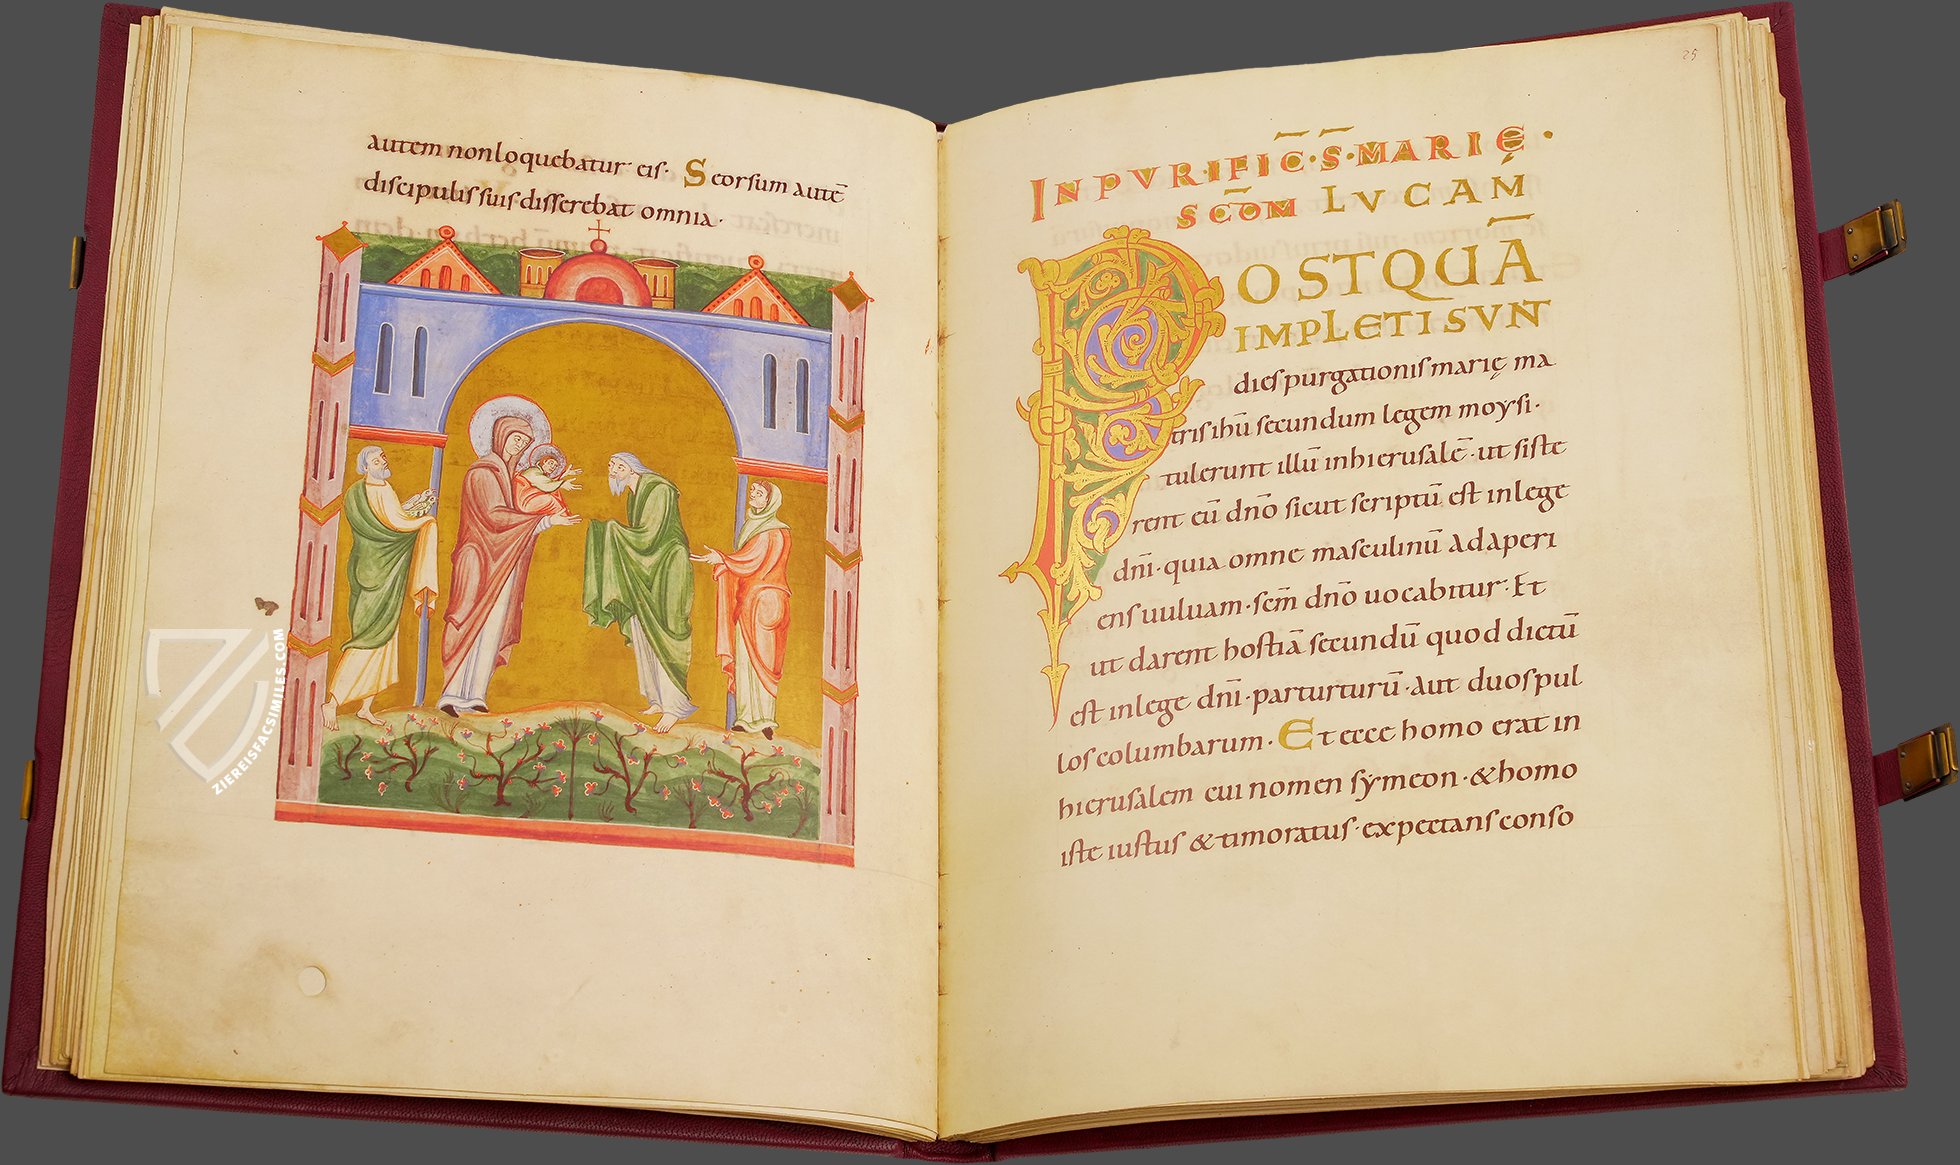 autem non loquebatur eis· Seorsum autē
discipulis suis disserebat omnia·
ZIEREISFACSIMILES.COM
25
IN PVRIFIC̄·S̄·MARIĘ·
SCD̄M LVCAM
POSTQUĀ
IMPLETI SVNT
dies purgationis marię ma
tris ihū secundum legem moysi·
tulerunt illū in hierusalē·ut siste
rent eū dn̄o sicut scriptū est in lege
dn̄i·quia omne masculinū adaperi
ens uuluam·sc̄m dn̄o uocabitur· Et
ut darent hostiā secundū quod dictū
est in lege dn̄i·par turturū·aut duos pul
los columbarum· Et ecce homo erat in
hierusalem cui nomen sẏmeon·& homo
iste iustus & timoratus·expectans conso